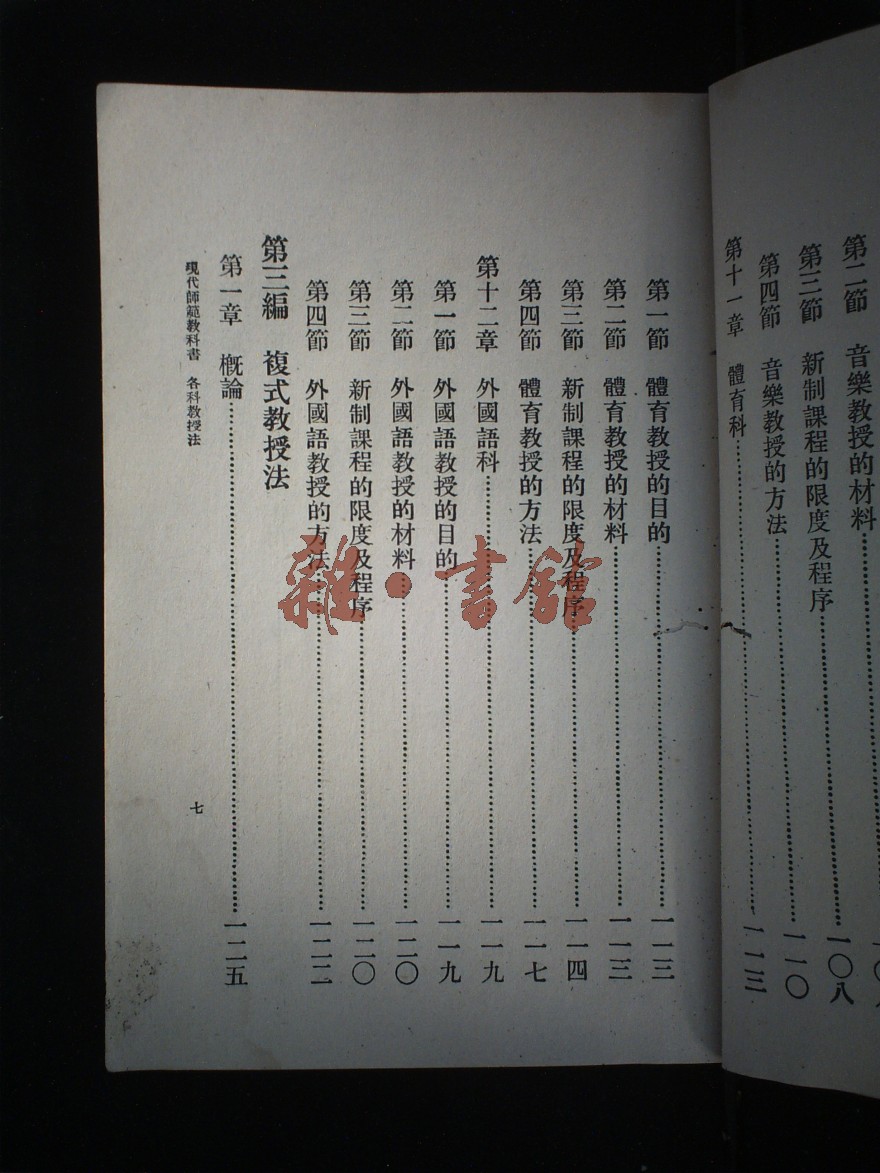 第二節　音樂教授的材料
第三節　新制課程的限度及程序……一〇八
第四節　音樂教授的方法……一一〇
第十一章　體育科……一一三
第一節　體育教授的目的……一一三
第二節　體育教授的材料……一一三
第三節　新制課程的限度及程序……一一四
第四節　體育教授的方法……一一七
第十二章　外國語科……一一九
第一節　外國語教授的目的……一一九
第二節　外國語教授的材料……一二〇
第三節　新制課程的限度及程序……一二〇
第四節　外國語教授的方法……一二二
第三編　複式教授法
第一章　概論……一二五
現代師範教科書　各科教授法　七
雜·書館